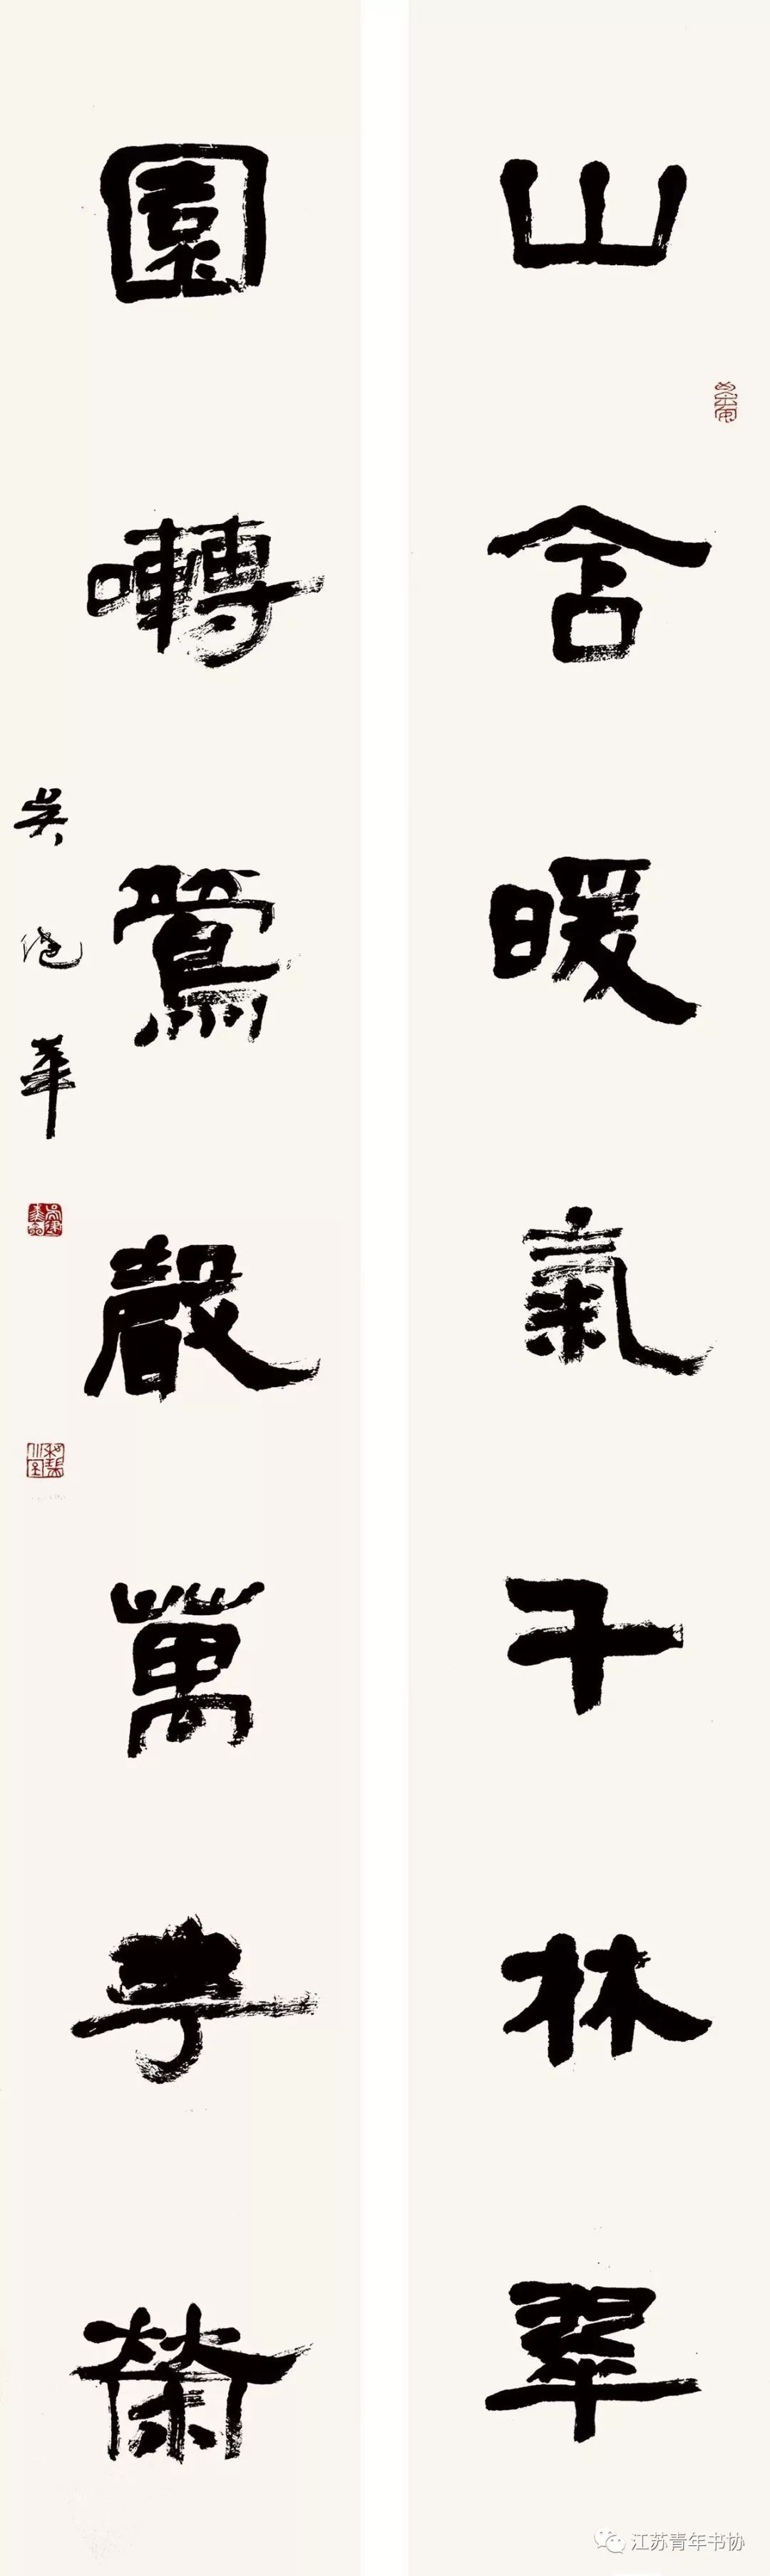 山含暖氣千林翠
園囀鶯聲萬事榮
吴建華
江苏青年书协